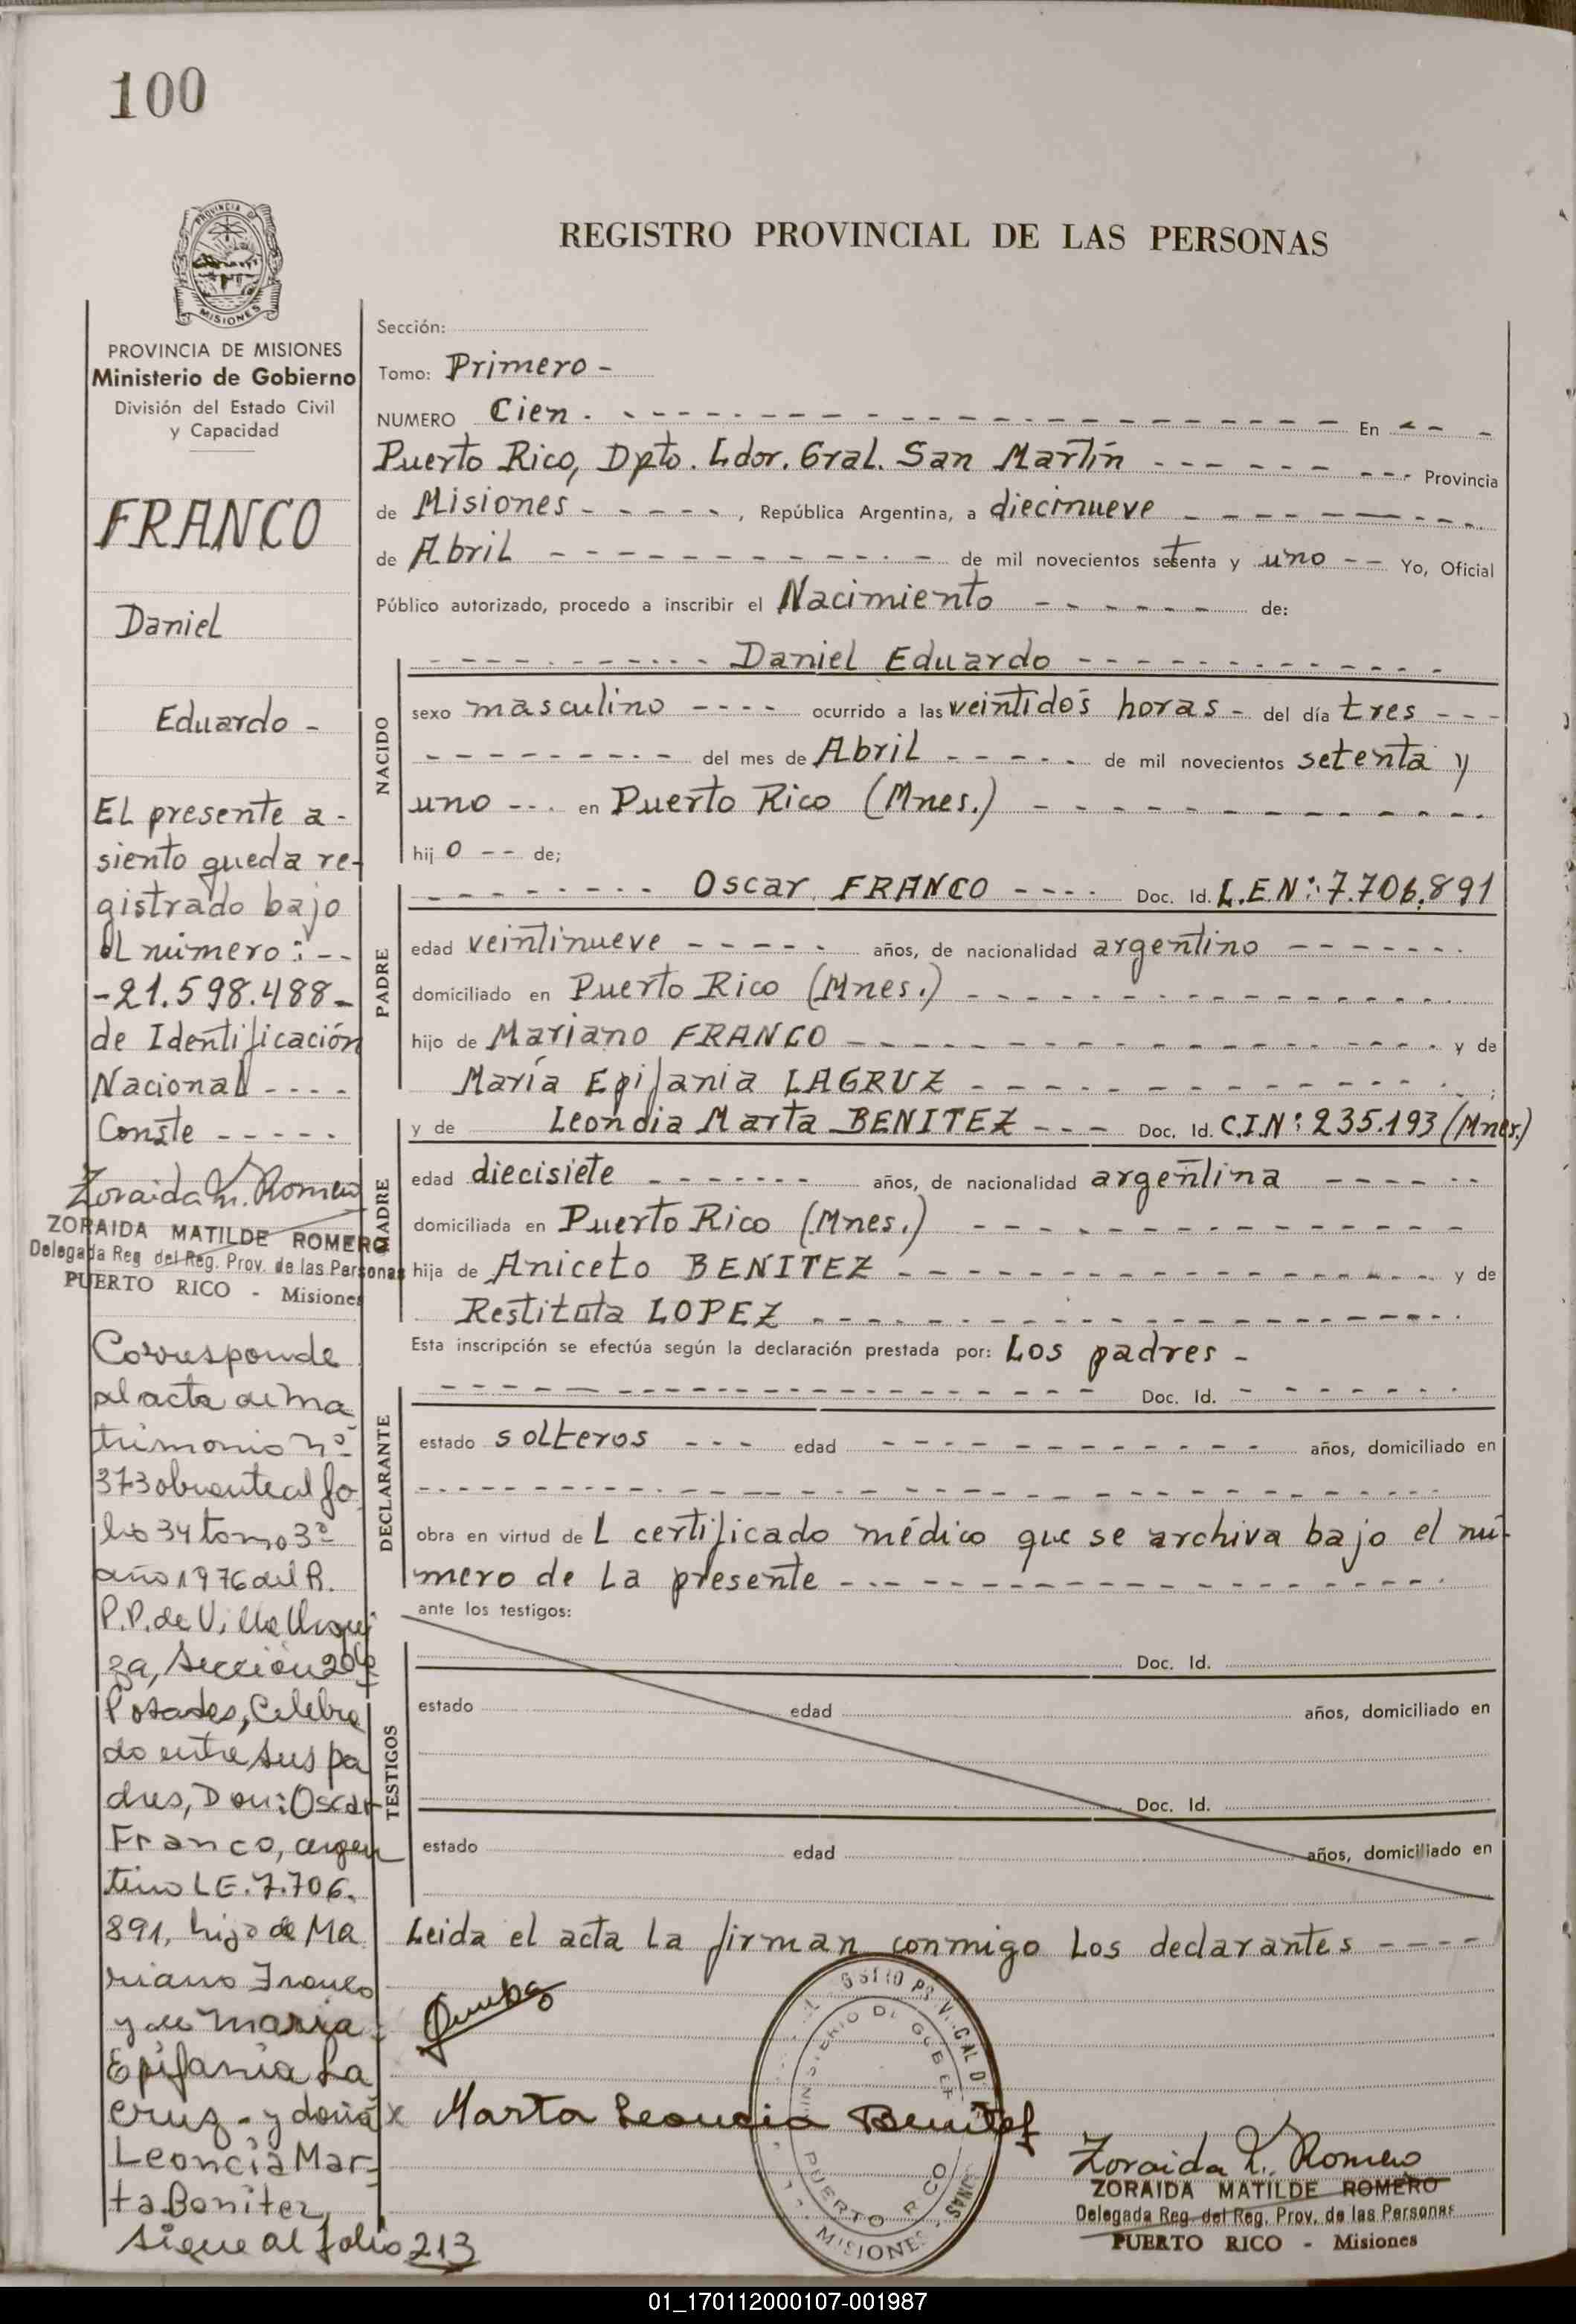 100
PROVINCIA DE
MISIONES
REGISTRO PROVINCIAL DE LAS PERSONAS
PROVINCIA DE MISIONES
Ministerio de Gobierno
División del Estado Civil
y Capacidad
FRANCO
Daniel
Eduardo -
EL presente a-
siento queda re-
gistrado bajo
el número: --
-21.598.488-
de Identificación
Nacional ----
Conste -----
Zoraida M. Romero
ZORAIDA MATILDE ROMERO
Delegada Reg. del Reg. Prov. de las Personas
PUERTO RICO - Misiones
Corresponde
al acta de ma
trimonio nº
373 obrante al fo
lio 34 tomo 3º
año 1976 del R.
P.P. de Villa Urqui
za, Sección 20
Posadas, Celebra
do entre sus pa
dres, Don: Oscar
Franco, argen
tino L.E. 7.706.
891, hijo de Ma
riano Franco
y de Maria
Epifania La
cruz - y doña
Leoncia Mar-
ta Benitez
Sigue al folio 213
Sección:
Tomo: Primero -
NUMERO Cien. - - - En - - -
Puerto Rico, Dpto. Ldor. Gral. San Martín - - - Provincia
de Misiones - - - , República Argentina, a diecinueve - - -
de Abril - - - de mil novecientos setenta y uno -- Yo, Oficial
Público autorizado, procedo a inscribir el Nacimiento - - - de:
NACIDO
- - - Daniel Eduardo - - -
sexo masculino ---- ocurrido a las veintidós horas - del día tres ---
- - - del mes de Abril - - - de mil novecientos setenta y
uno --- en Puerto Rico (Mnes.) - - -
hij o -- de;
PADRE
- - - Oscar FRANCO ---- Doc. Id. L.E.Nº: 7.706.891
edad veintinueve - - - años, de nacionalidad argentino - - -
domiciliado en Puerto Rico (Mnes.) - - -
hijo de Mariano FRANCO - - - y de
María Epifania LACRUZ - - - ;
MADRE
y de Leondia Marta BENITEZ --- Doc. Id. C.I.Nº: 235.193 (Mnes.)
edad diecisiete - - - años, de nacionalidad argentina - - -
domiciliada en Puerto Rico (Mnes.) - - -
hija de Aniceto BENITEZ - - - y de
Restituta LOPEZ - - -
Esta inscripción se efectúa según la declaración prestada por: Los padres -
DECLARANTE
- - - Doc. Id. - - -
estado solteros --- edad - - - años, domiciliado en
- - -
obra en virtud de L certificado médico que se archiva bajo el nú-
mero de la presente - - -
ante los testigos:
TESTIGOS
Doc. Id.
estado edad años, domiciliado en
Doc. Id.
estado edad años, domiciliado en
Leida el acta la firman conmigo los declarantes ----
x Marta Leoncia Benitez
MINISTERIO DE GOBIERNO
PUERTO RICO
MISIONES
Zoraida M. Romero
ZORAIDA MATILDE ROMERO
Delegada Reg. del Reg. Prov. de las Personas
PUERTO RICO - Misiones
01_170112000107-001987